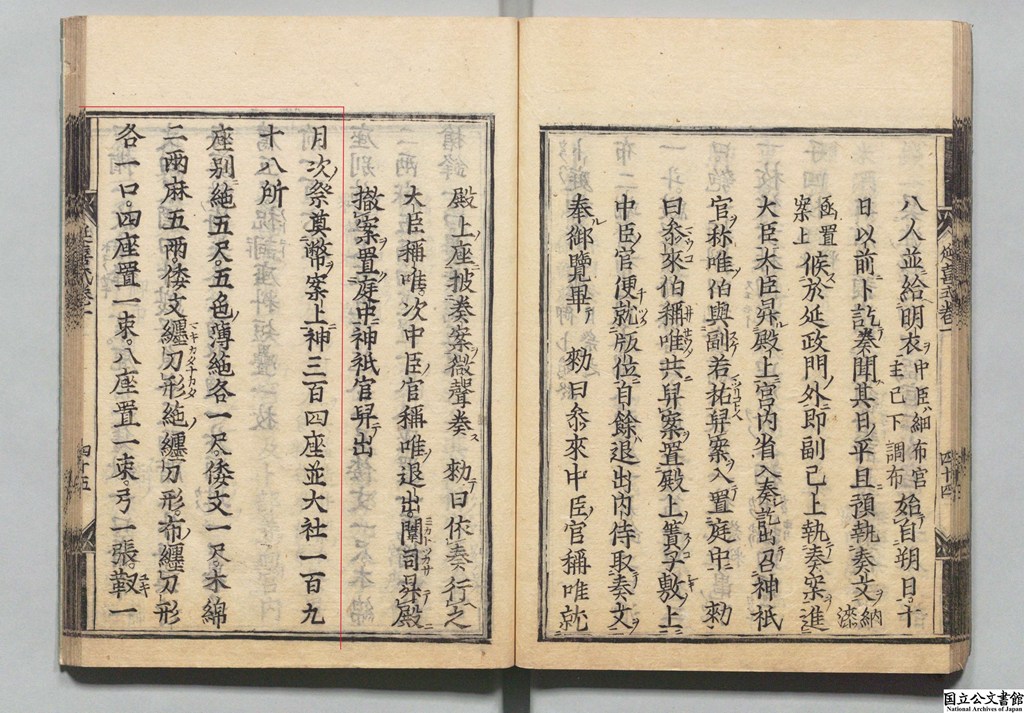 延喜式卷一　四十四
八人並給明衣中臣細布宮主已下調布始自朔日十
日以前卜訖奏聞其日平旦預執奏文納漆
函置案上候於延政門外即副已上執奏案進
大臣大臣昇殿上宮内省入奏訖出召神祇
官称唯伯與副若祐舁案入置庭中　勅
曰叅來伯稱唯共舁案置殿上簀子敷上
中臣官便就版位自餘退出内侍取奏文
奉御覽畢　勅曰叅來中臣官稱唯就
殿上座披奏案微聲奏　勅曰依奏行之
大臣稱唯次中臣官稱唯退出闈司昇殿
撤案置庭中神祇官舁出
月次祭奠幣案上神三百四座並大社一百九
十八所
座別絁五尺五色薄絁各一尺倭文一尺木綿
二兩麻五兩倭文纏刀形絁纏刀形布纏刀形
各一口四座置一束八座置一束弓一張靫一
延喜式卷一　四十五
国立公文書館
National Archives of Japan